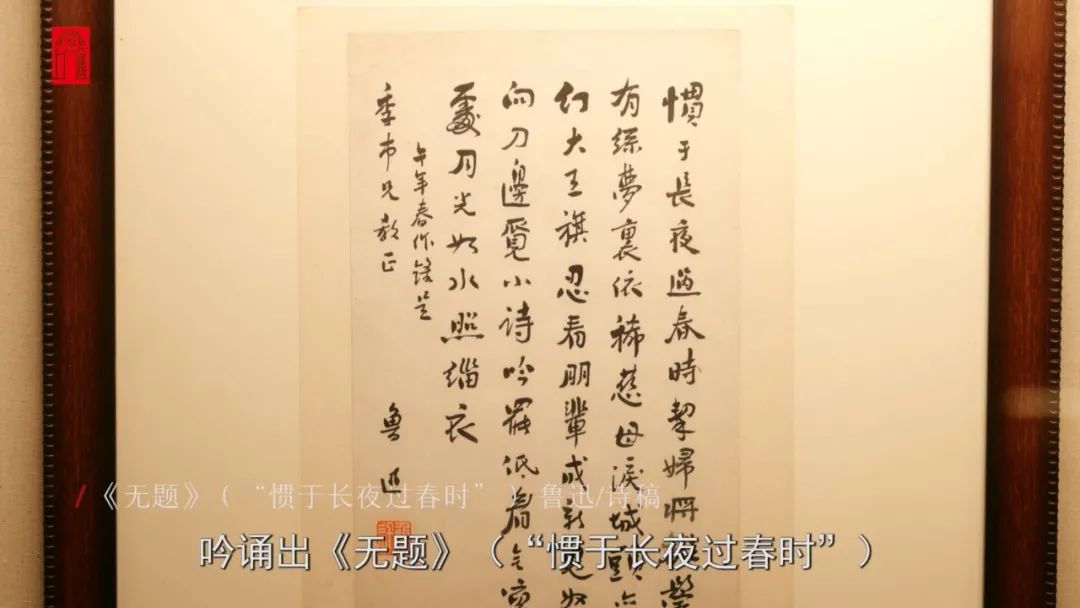 慣于長夜過春時挈婦將雛鬢
有絲夢裏依稀慈母淚城頭
幻大王旗忍看朋輩成新鬼怒
向刀邊覓小詩吟罷低眉無寫
處月光如水照緇衣
午年春作錄呈
季市兄教正
魯迅
/《无题》（“惯于长夜过春时”）鲁迅/诗稿
吟诵出《无题》（“惯于长夜过春时”）